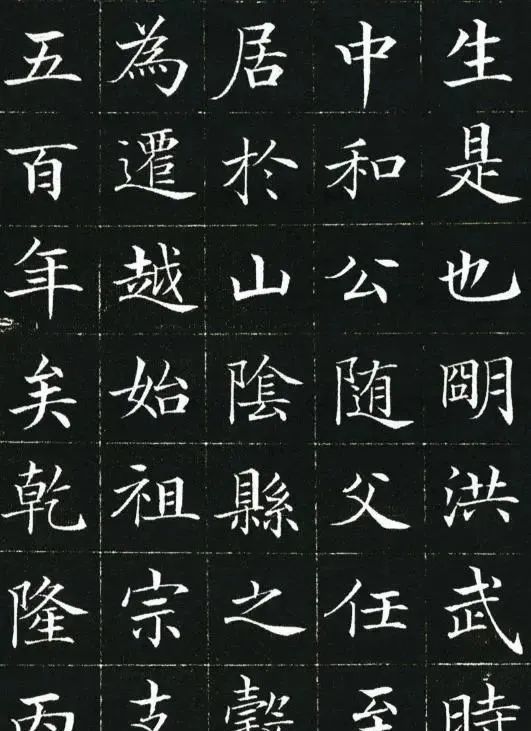 生是也朙洪武時
中和公随父任至
居於山陰縣之
為遷越始祖宗支
五百年矣乾隆丙